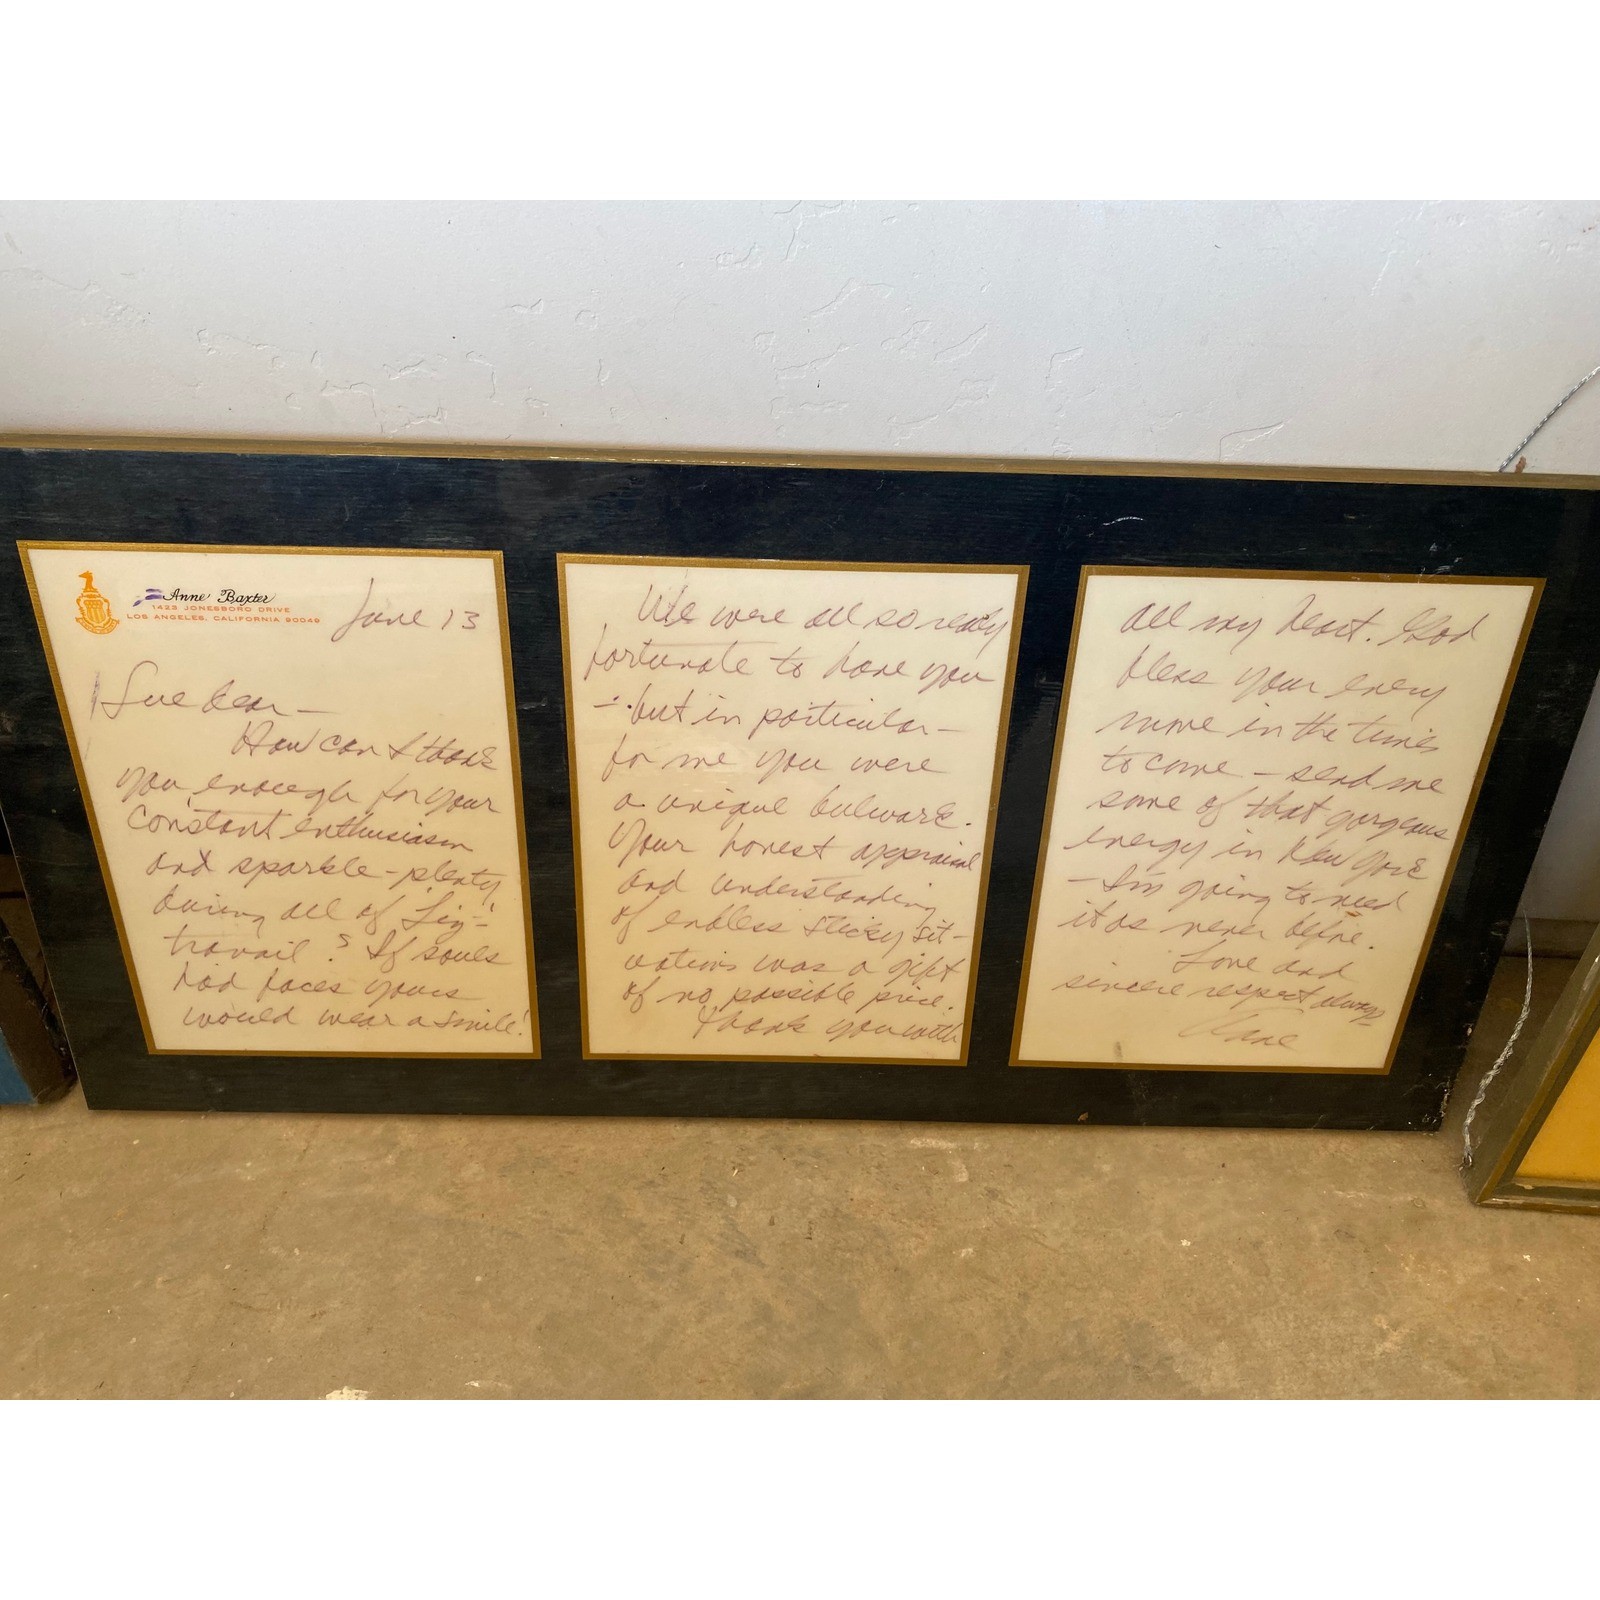 Anne Baxter
1423 JONESBORO DRIVE
LOS ANGELES, CALIFORNIA 90049
June 13
Sue dear —
How can I thank
you enough for your
constant enthusiasm
and sparkle - plenty
during all of
travail? If souls
had faces yours
would wear a smile!
We were all so really
fortunate to have you
- but in particular -
for me you were
a unique bulwark.
Your honest appraisal
and understanding
of endless sticky sit-
uations was a gift
of no possible price.
Thank you with
all my heart. God
bless your every
move in the times
to come - send me
some of that gorgeous
energy in New York
- I'm going to need
it as never before.
Love and
sincere respect always -
Anne